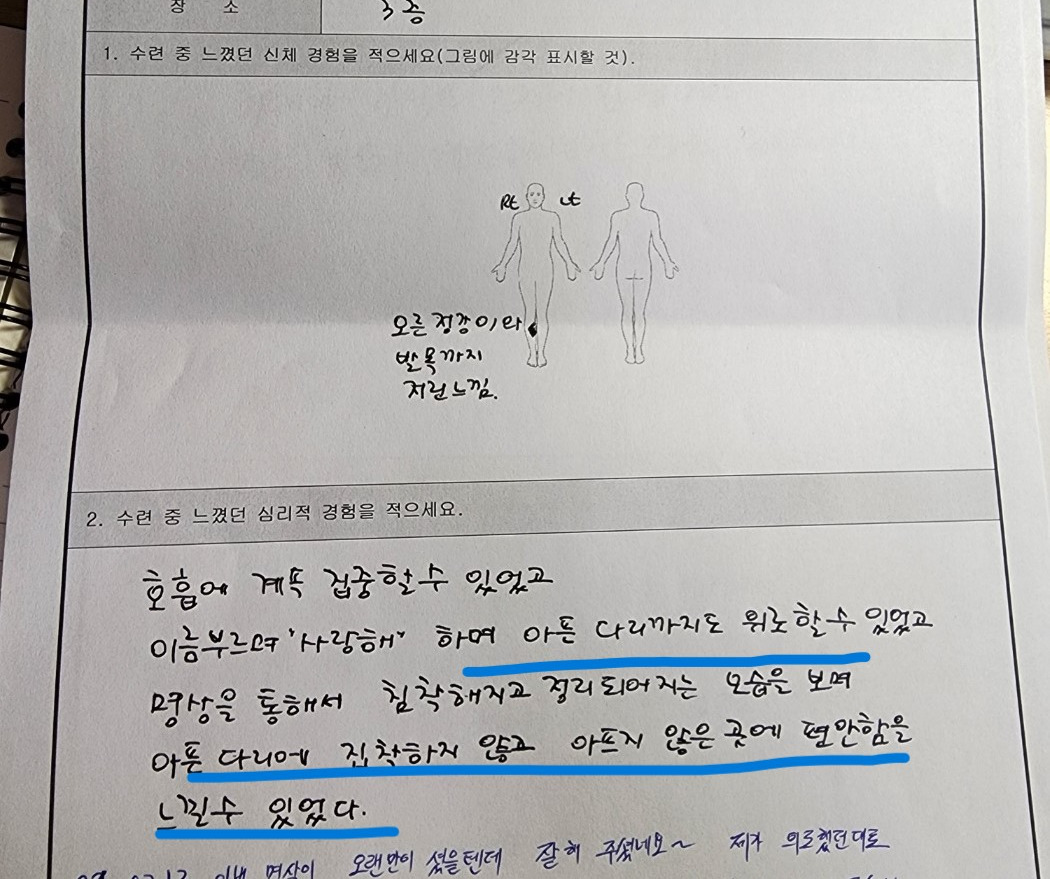 장 소 3층
1. 수련 중 느꼈던 신체 경험을 적으세요(그림에 감각 표시할 것).
Rt Lt
오른 정강이와
발목까지
저린느낌.
2. 수련 중 느꼈던 심리적 경험을 적으세요.
호흡에 계속 집중할수 있었고
이름부르며 "사랑해" 하며 아픈 다리까지도 위로할수 있었고
명상을 통해서 침착해지고 정리되어지는 모습을 보며
아픈 다리에 집착하지 않고 아프지 않은 곳에 편안함을
느낄수 있었다.
명상이 오랜만이 셨을텐데 잘해 주셨네요~ 제가 의도했던대로